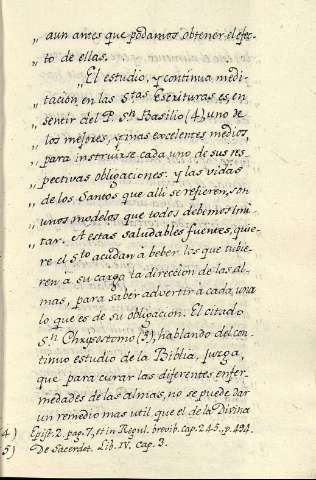 „ aun antes que podamos obtener el efec-
„ to de ellas.
„ El estudio, y continua medi-
„ tacion en las S.tas Escrituras es, en
„ sentir del P. S.n Basilio (4), uno de
„ los mejores, y mas excelentes medios,
„ para instruirse cada uno de sus res-
„ pectivas obligaciones: y las vidas
„ de los Santos que alli se refieren, son
„ unos modelos que todos debemos imi-
„ tar. A estas saludables fuentes, quie-
re el S.to acudan à beber los que tubie-
ren à su cargo la direccion de las al-
mas, para saber advertir à cada una
lo que es de su obligacion. El citado
S.n Chrysostomo (5), hablando del con-
tinuo estudio de la Biblia, juzga,
que para curar las diferentes enfer-
medades de las almas, no se puede dar
un remedio mas util que el de la Divina
4) Epist. 2. pag. 7, et in Regul. brevib. cap. 245. p. 494.
5) De Sacerdot. Lib. IV. cap. 3.